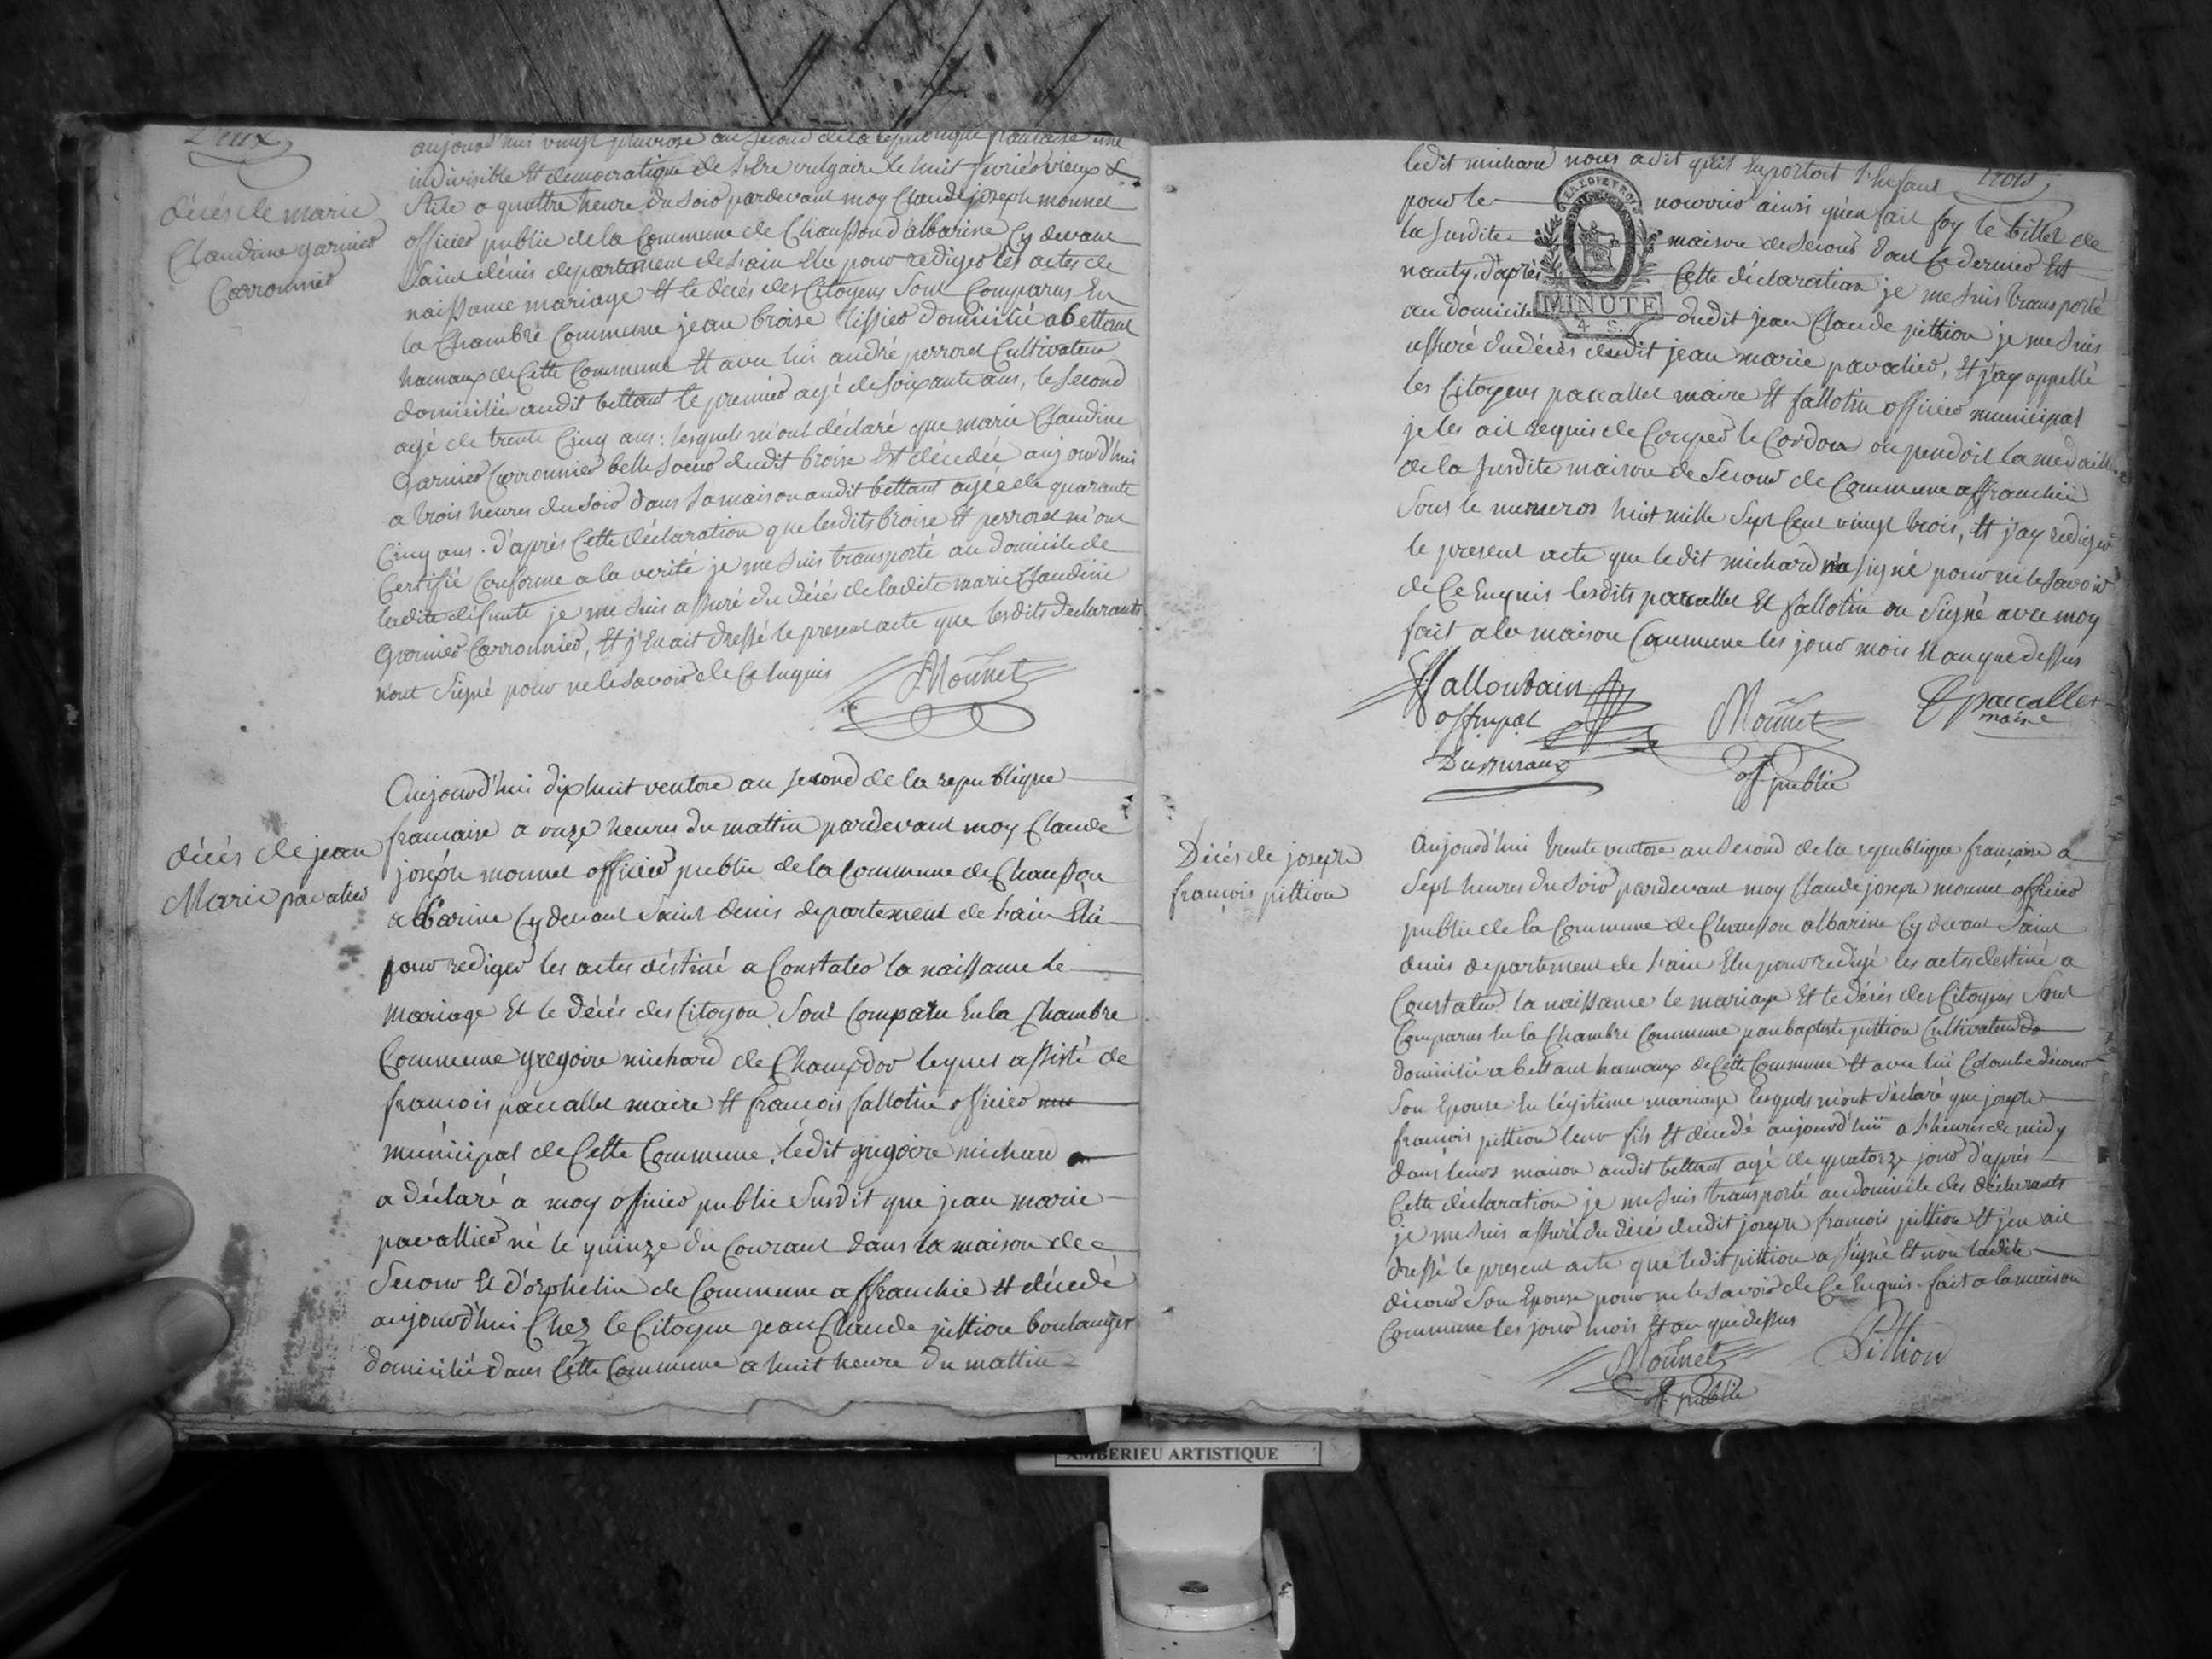 Deux
décès de marie
Claudine garnier
Carronnier
aujourd'hui vingt pluviose an second de la republique francaise une
indivisible et democratique de l'ère vulgaire le huit fevrier vieux
stile a quattre heure du soir pardevant moy Claude joseph monnet
officier public de la Commune de Chausson d'albarine Cy devant
Saint dénis departement de l'ain Elu pour rediger les actes de
naissance mariage et le décés des Citoyens Sont Comparus En
la Chambre Commune jean broise tissier domicilié a bettant
hamaux de Cette Commune et avec lui andré perrod Cultivateur
domicilié audit bettant le premier agé de soixante ans, le second
agé de trente Cinq ans : lesquels m'ont déclaré que marie Claudine
garnier Carronnier belle soeur dudit broise Est décedée aujourd'hui
a trois heures du soir dans sa maison audit bettant agée de quarante
Cinq ans. d'après Cette déclaration que lesdits broise et perrod m'ont
Certifié Conforme a la verité je me suis transporté au domicile de
ladite défunte je me suis assuré du décés de ladite marie Claudine
garnier Carronnier, et j'En ait dressé le present acte que lesdits declarants
n'ont Signé pour ne le savoir de Ce Enquis
Monnet
décés de jean
Marie pavalier
Aujourd'hui dixhuit ventose an second de la republique
francaise a onze heures du mattin pardevant moy Claude
joseph monnet officier public de la Commune de Chausson
albarine Cy devant Saint denis departement de l'ain Elu
pour rediger les actes déstiné a Constater la naissance le
mariage Et le Décés des Citoyon Sont Comparu En la Chambre
Commune gregoire michard de Champdor lequel assisté de
francois paccallet maire et francois fallotin officier mu
municipal de Cette Commune. ledit grégoire michard a
a déclaré a moy officier public Susdit que jean marie
pavallier né le quinze du Courant dans la maison de
Secour Et d'orphelin de Commune affranchie et décedé
aujourd'hui Chez le Citoyen jean Claude pittion boulanger
domicilié dans Cette Commune a huit heure du mattin
trois
ledit michard nous a dit qu'il Enportoit l'Enfant
pour le nourrir ainsi qu'en fait foy le billet de
la susdite maison de secour dont Ce dernier Est
nanty. d'après Cette déclaration je me suis transporté
au domicile dudit jean Claude pittion je me suis
assuré du décés dudit jean marie pavalier, Et j'ay appellé
les Citoyens paccallet maire Et fallotin officier municipal
je les ait Requis de Couper le Cordon ou pendoit la medaille
de la susdite maison de Secour de Commune affranchie
Sous le numeros huit mille Sept Cent vingt trois, Et j'ay redigé
le present acte que ledit michard n'a signé pour ne le savoir
de Ce Enquis lesdits paccallet Et fallotin on Signé avec moy
fait a la maison Commune les jour mois Et an que dessus
MINUTE
4 S.
off mpal
Monnet
off public
paccallet
maire
Décés de joseph
françois pittion
Aujourd'hui trente ventose an second de la republique française a
Sept heures du soir pardevant moy Claude joseph monnet officier
public de la Commune de Chausson albarine Cy devant Saint
denis departement de l'ain Elu pour redigé les actes destiné a
Constater la naissance le mariage Et le décés des Citoyens Sont
Comparus En la Chambre Commune jean baptiste pittion Cultivateur do
domicilié a bettant hamaux de Cette Commune Et avec lui Colombe décour
Son Epouse En légitime mariage lesquels m'ont déclaré que joseph
francois pittion leur fils Et décédé aujourd'hui a l'heure de midy
dans leurs maison audit bettant agé de quatorze jour d'après
Cette déclaration je me suis transporté au domicile des déclarants
je me suis assuré du décés dudit joseph francois pittion Et j'en ait
dressé le present acte que ledit pittion a signé Et non ladite
décour Son Epouse pour ne le savoir de Ce Enquis. fait a la maison
Commune les jour mois Et an que dessus
Monnet
off public
Pittion
AMBERIEU ARTISTIQUE